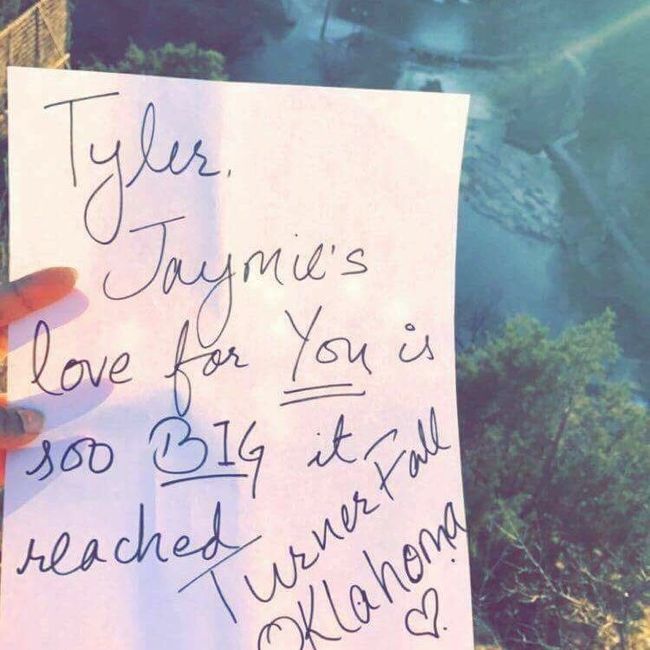 Tyler,
Jaymie's
love for You is
soo BIG it
reached Turner Fall
OKlahoma